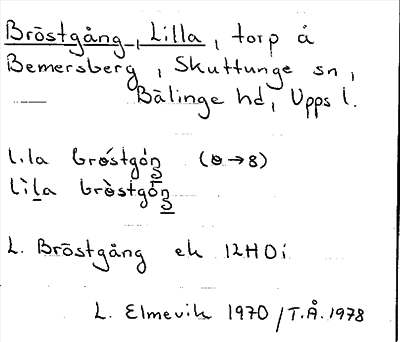 Bröstgång, Lilla, torp å
Bemersberg, Skuttunge sn,
Bälinge hd, Upps l.
lila brøstgóŋ (ɵ→8)
lìla brøstgòŋ
L. Bröstgång ek 12H0i
L. Elmevik 1970 / T.Å. 1978